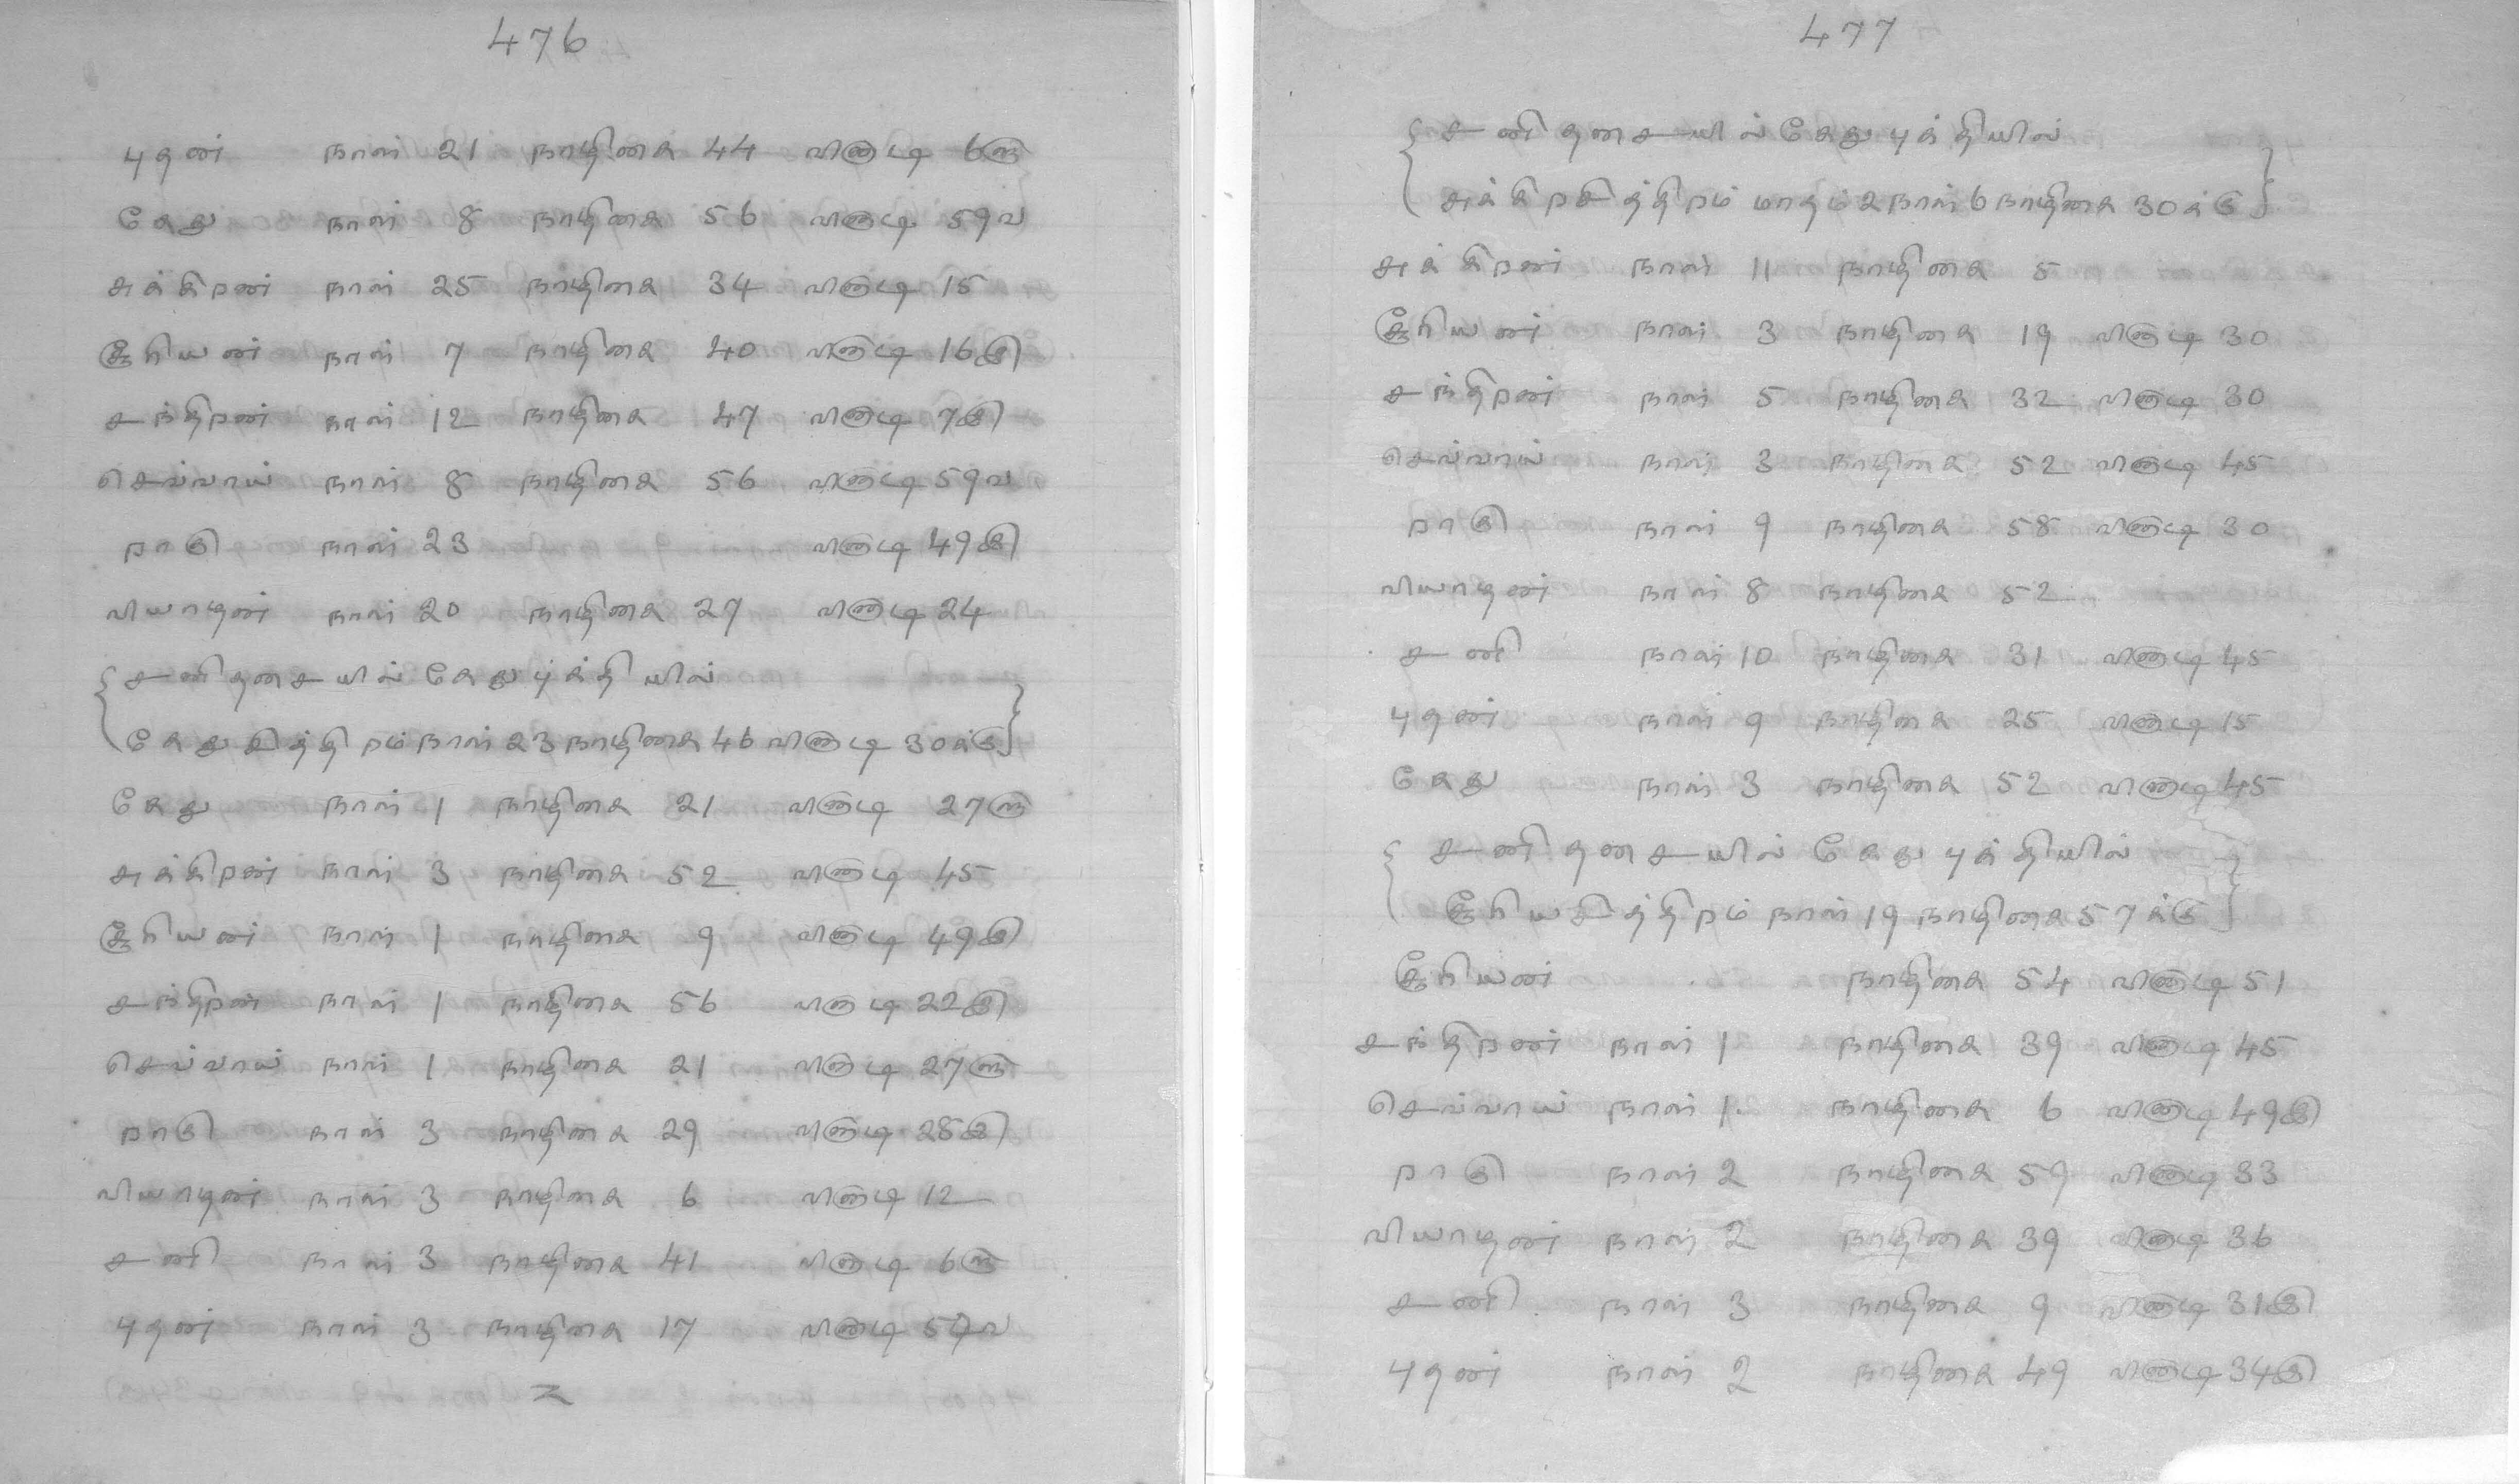 476
புதன் நாள் 21 நாழிகை 44 வினாடி 6ரு
கேது நாள் 8 நாழிகை 56 வினாடி 59வ
சுக்கிறன் நாள் 25 நாழிகை 34 வினாடி 15
சூரியன் நாள் 7 நாழிகை 40 வினாடி 16இ
சந்திறன் நாள் 12 நாழிகை 47 வினாடி 7இ
செவ்வாய் நாள் 8 நாழிகை 56 வினாடி 59வ
றாகு நாள் 23 வினாடி 49இ
வியாழன் நாள் 20 நாழிகை 27 வினாடி 24
{ சனி தசையில் கேது புக்தியில்
கேது சித்திறம் நாள் 23 நாழிகை 46 வினாடி 30க்கு }
கேது நாள் 1 நாழிகை 21 வினாடி 27ரு
சுக்கிறன் நாள் 3 நாழிகை 52 வினாடி 45
சூரியன் நாள் 1 நாழிகை 9 வினாடி 49இ
சந்திறன் நாள் 1 நாழிகை 56 வினாடி 22இ
செவ்வாய் நாள் 1 நாழிகை 21 வினாடி 27ரு
றாகு நாள் 3 நாழிகை 29 வினாடி 28இ
வியாழன் நாள் 3 நாழிகை 6 வினாடி 12
சனி நாள் 3 நாழிகை 41 வினாடி 6ரு
புதன் நாள் 3 நாழிகை 17 வினாடி 57வ
477
{ சனி தசையில் கேது புக்தியில்
சுக்கிறசித்திறம் மாதம் 2 நாள் 6 நாழிகை 30க்கு }
சுக்கிறன் நாள் 11 நாழிகை 5
சூரியன் நாள் 3 நாழிகை 19 வினாடி 30
சந்திறன் நாள் 5 நாழிகை 32 வினாடி 30
செவ்வாய் நாள் 3 நாழிகை 52 வினாடி 45
றாகு நாள் 9 நாழிகை 58 வினாடி 30
வியாழன் நாள் 8 நாழிகை 52
சனி நாள் 10 நாழிகை 31 வினாடி 45
புதன் நாள் 9 நாழிகை 25 வினாடி 15
கேது நாள் 3 நாழிகை 52 வினாடி 45
{ சனி தசையில் கேது புக்தியில்
சூரியசித்திறம் நாள் 19 நாழிகை 57க்கு }
சூரியன் நாழிகை 54 வினாடி 51
சந்திறன் நாள் 1 நாழிகை 39 வினாடி 45
செவ்வாய் நாள் 1 நாழிகை 6 வினாடி 49இ
றாகு நாள் 2 நாழிகை 59 வினாடி 33
வியாழன் நாள் 2 நாழிகை 39 வினாடி 36
சனி நாள் 3 நாழிகை 9 வினாடி 31இ
புதன் நாள் 2 நாழிகை 49 வினாடி 34இ